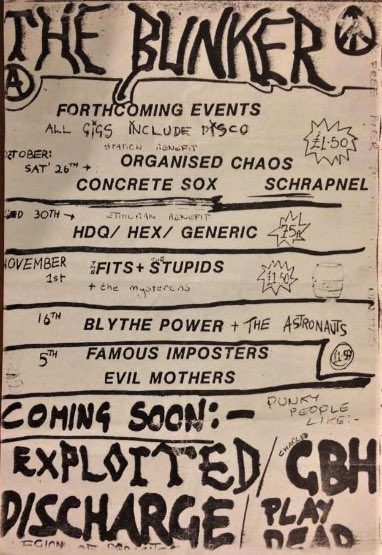 THE BUNKER
A
FORTHCOMING EVENTS
ALL GIGS INCLUDE DISCO
£1.50
STATION BENEFIT
TOBER:
SAT' 26TH → ORGANISED CHAOS
CONCRETE SOX SCHRAPNEL
ED 30TH → BENEFIT
HDQ/ HEX/ GENERIC 75p
NOVEMBER
1st THE FITS + THE STUPIDS £1.50
+ the mysterons
16TH BLYTHE POWER + THE ASTRONAUTS
5TH FAMOUS IMPOSTERS £1.50
EVIL MOTHERS
COMING SOON:-
PUNKY
PEOPLE
LIKE:-
EXPLOITED/ CHARGED GBH
DISCHARGE/ PLAY
DEAD